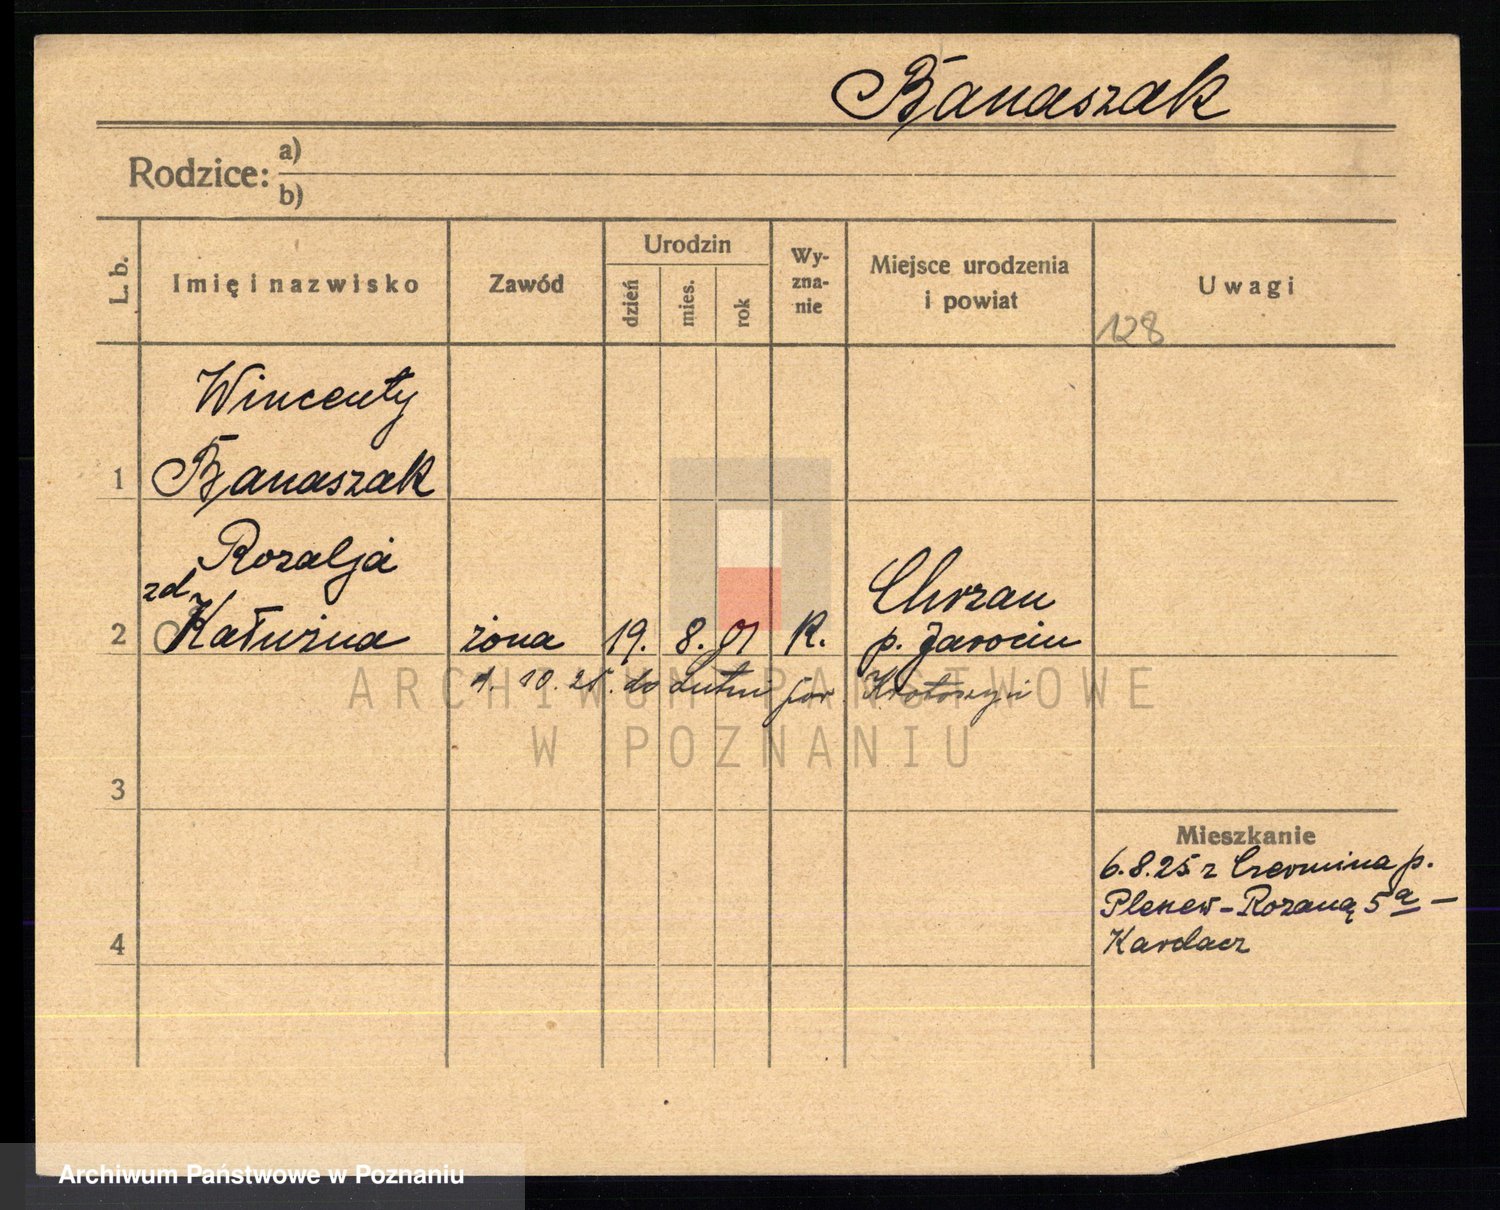 Banaszak
Rodzice: a)
b)
L. b.
Imię i nazwisko
Zawód
Urodzin
dzień
mies.
rok
Wy-
zna-
nie
Miejsce urodzenia
i powiat
Uwagi
128
Wincenty
1 Banaszak
Rozalja
zd.
2 Kałużna żona 19. 8. 01 K. Chrzan
p. Jarocin
1. 10. 25. do Lutni pow. Krotoszyn
3
4
Mieszkanie
6.8.25 z Czermina p.
Plenew - Rozaną 5a -
Kardacz
ARCHIWUM PAŃSTWOWE
W POZNANIU
Archiwum Państwowe w Poznaniu